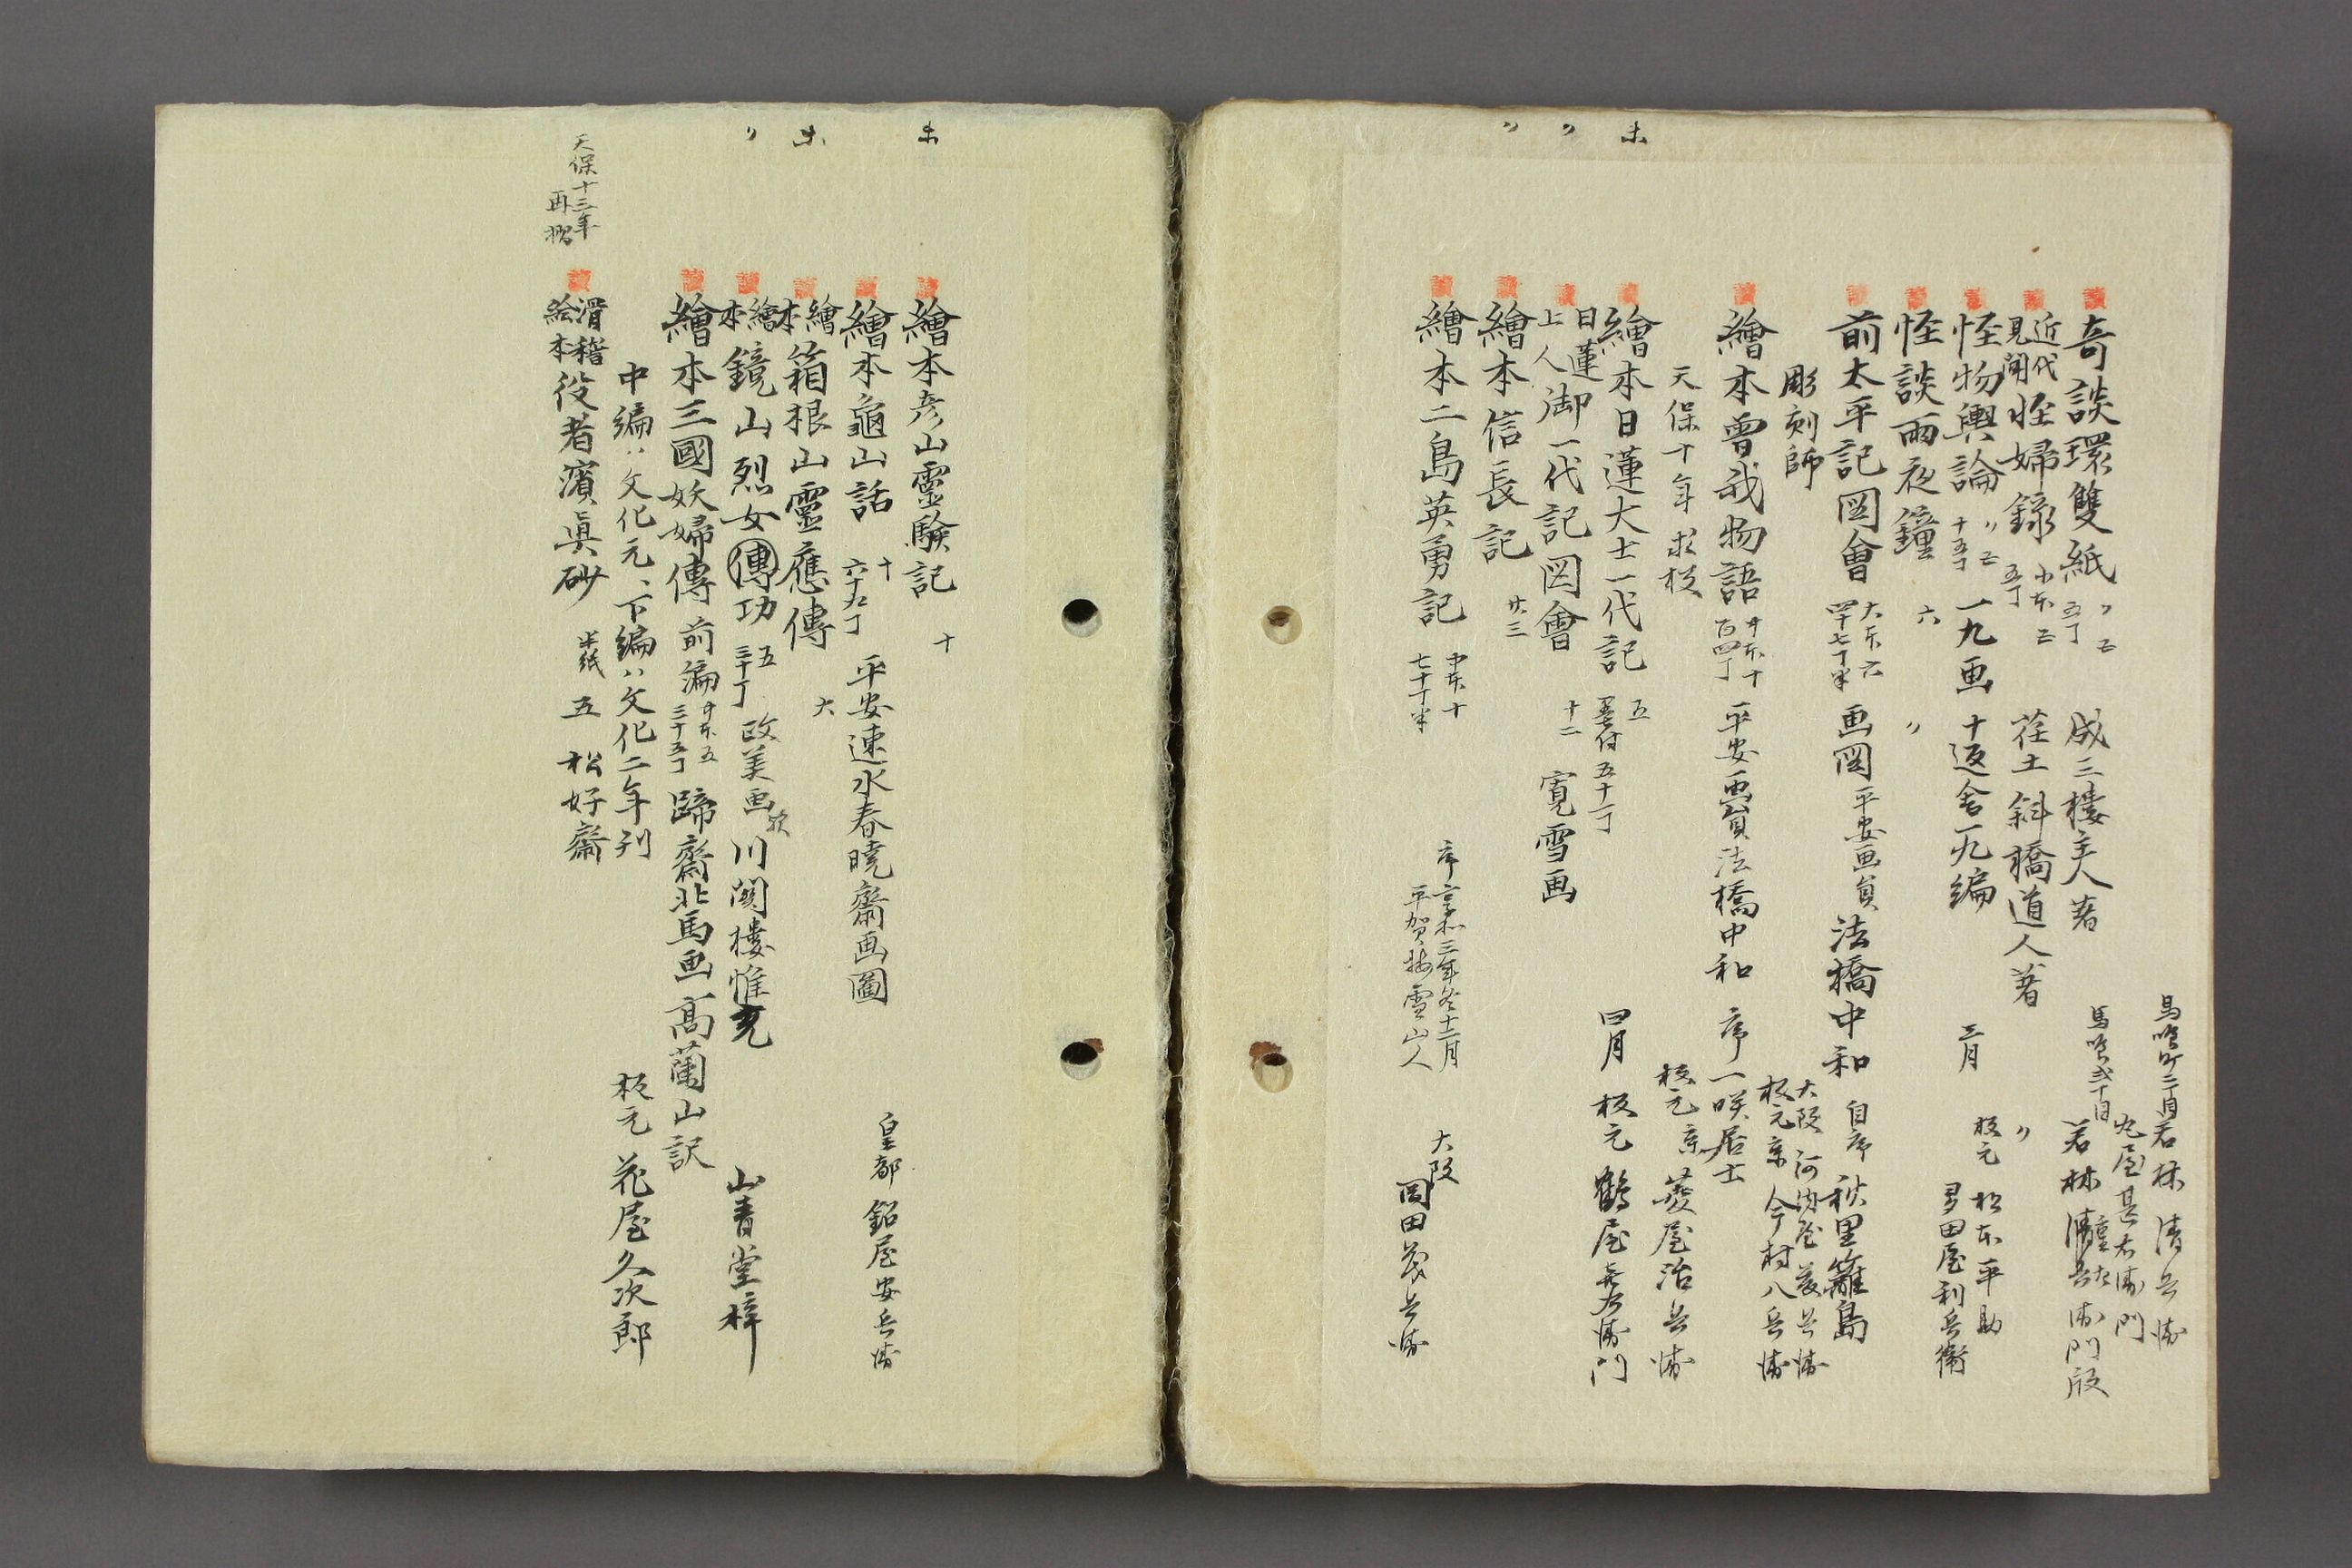 奇談環雙紙 〃五 五丁 成三樓主人著 馬喰町二丁目若林清兵衛
丸屋甚右衛門
近代見聞怪婦録 小本五 五丁 荏土斜橋道人著 馬喰弐丁目 若林清兵衛
怪物輿論 〃五 十五丁 一九画 十返舎一九編 〃
怪談雨夜鐘 六 〃 三月 板元 松本平助 多田屋利兵衛
前太平記図會 大本六 画図 平安画員法橋中和 自序 秋里籬島
彫刻師 大阪 河内屋茂兵衛
板元京 今村八兵衛
繪本曽我物語 十 百四丁 平安画員法橋中和 序一咲居士
天保十年求板 板元京 菱屋治兵衛
繪本日蓮大士一代記 五 墨付五十丁 四月 板元鶴屋喜右衛門
日蓮上人御一代記図會 十二 寛雪画
繪本信長記 廿三
繪本二島英勇記 中本十 七十丁半 序享和三年冬十二月 平賀梅雪山人 大阪 岡田茂兵衛
未 〃 〃
繪本彦山靈験記 十
繪本龜山話 十 六十九丁 平安速水春曉齋画圖 皇都 鉛屋安兵衛
繪本箱根山靈應傳 六
繪本鏡山烈女傳功 五 三十丁 政美画 川関樓惟充 山青堂梓
繪本三國妖婦傳 前編 五 三十五丁 蹄齋北馬画 高蘭山訳
中編ハ文化元、下編ハ文化二年刊 板元 花屋久次郎
滑稽絵本役者濱眞砂 半紙五 松好齋
天保十三年再摺
未 未 〃